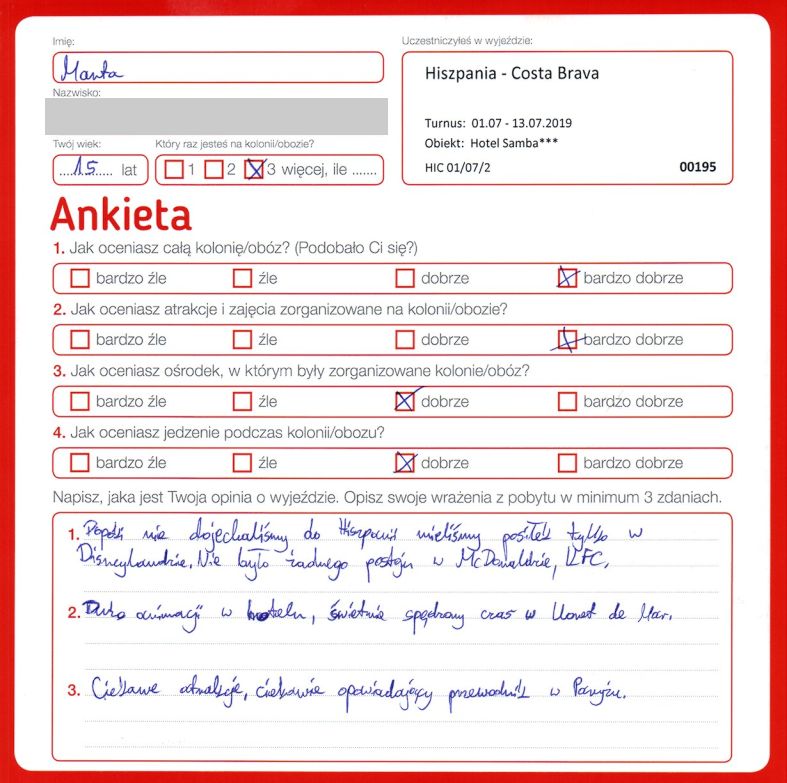 Imię:
Marta
Nazwisko:
Twój wiek:
15 lat
Który raz jesteś na kolonii/obozie?
1 2 3 więcej, ile .......
Uczestniczyłeś w wyjeździe:
Hiszpania - Costa Brava
Turnus: 01.07 - 13.07.2019
Obiekt: Hotel Samba***
HIC 01/07/2 00195
Ankieta
1. Jak oceniasz całą kolonię/obóz? (Podobało Ci się?)
bardzo źle źle dobrze bardzo dobrze
2. Jak oceniasz atrakcje i zajęcia zorganizowane na kolonii/obozie?
bardzo źle źle dobrze bardzo dobrze
3. Jak oceniasz ośrodek, w którym były zorganizowane kolonie/obóz?
bardzo źle źle dobrze bardzo dobrze
4. Jak oceniasz jedzenie podczas kolonii/obozu?
bardzo źle źle dobrze bardzo dobrze
Napisz, jaka jest Twoja opinia o wyjeździe. Opisz swoje wrażenia z pobytu w minimum 3 zdaniach.
1. nie dojechaliśmy do Hiszpanii mieliśmy posiłek tylko w
Disneylandzie. Nie było żadnego postoju w McDonaldzie, KFC.
2. Dużo animacji w hotelu, świetnie spędzony czas w Lloret de Mar.
3. Ciekawe atrakcje, ciekawie opowiadający przewodnik w Paryżu.